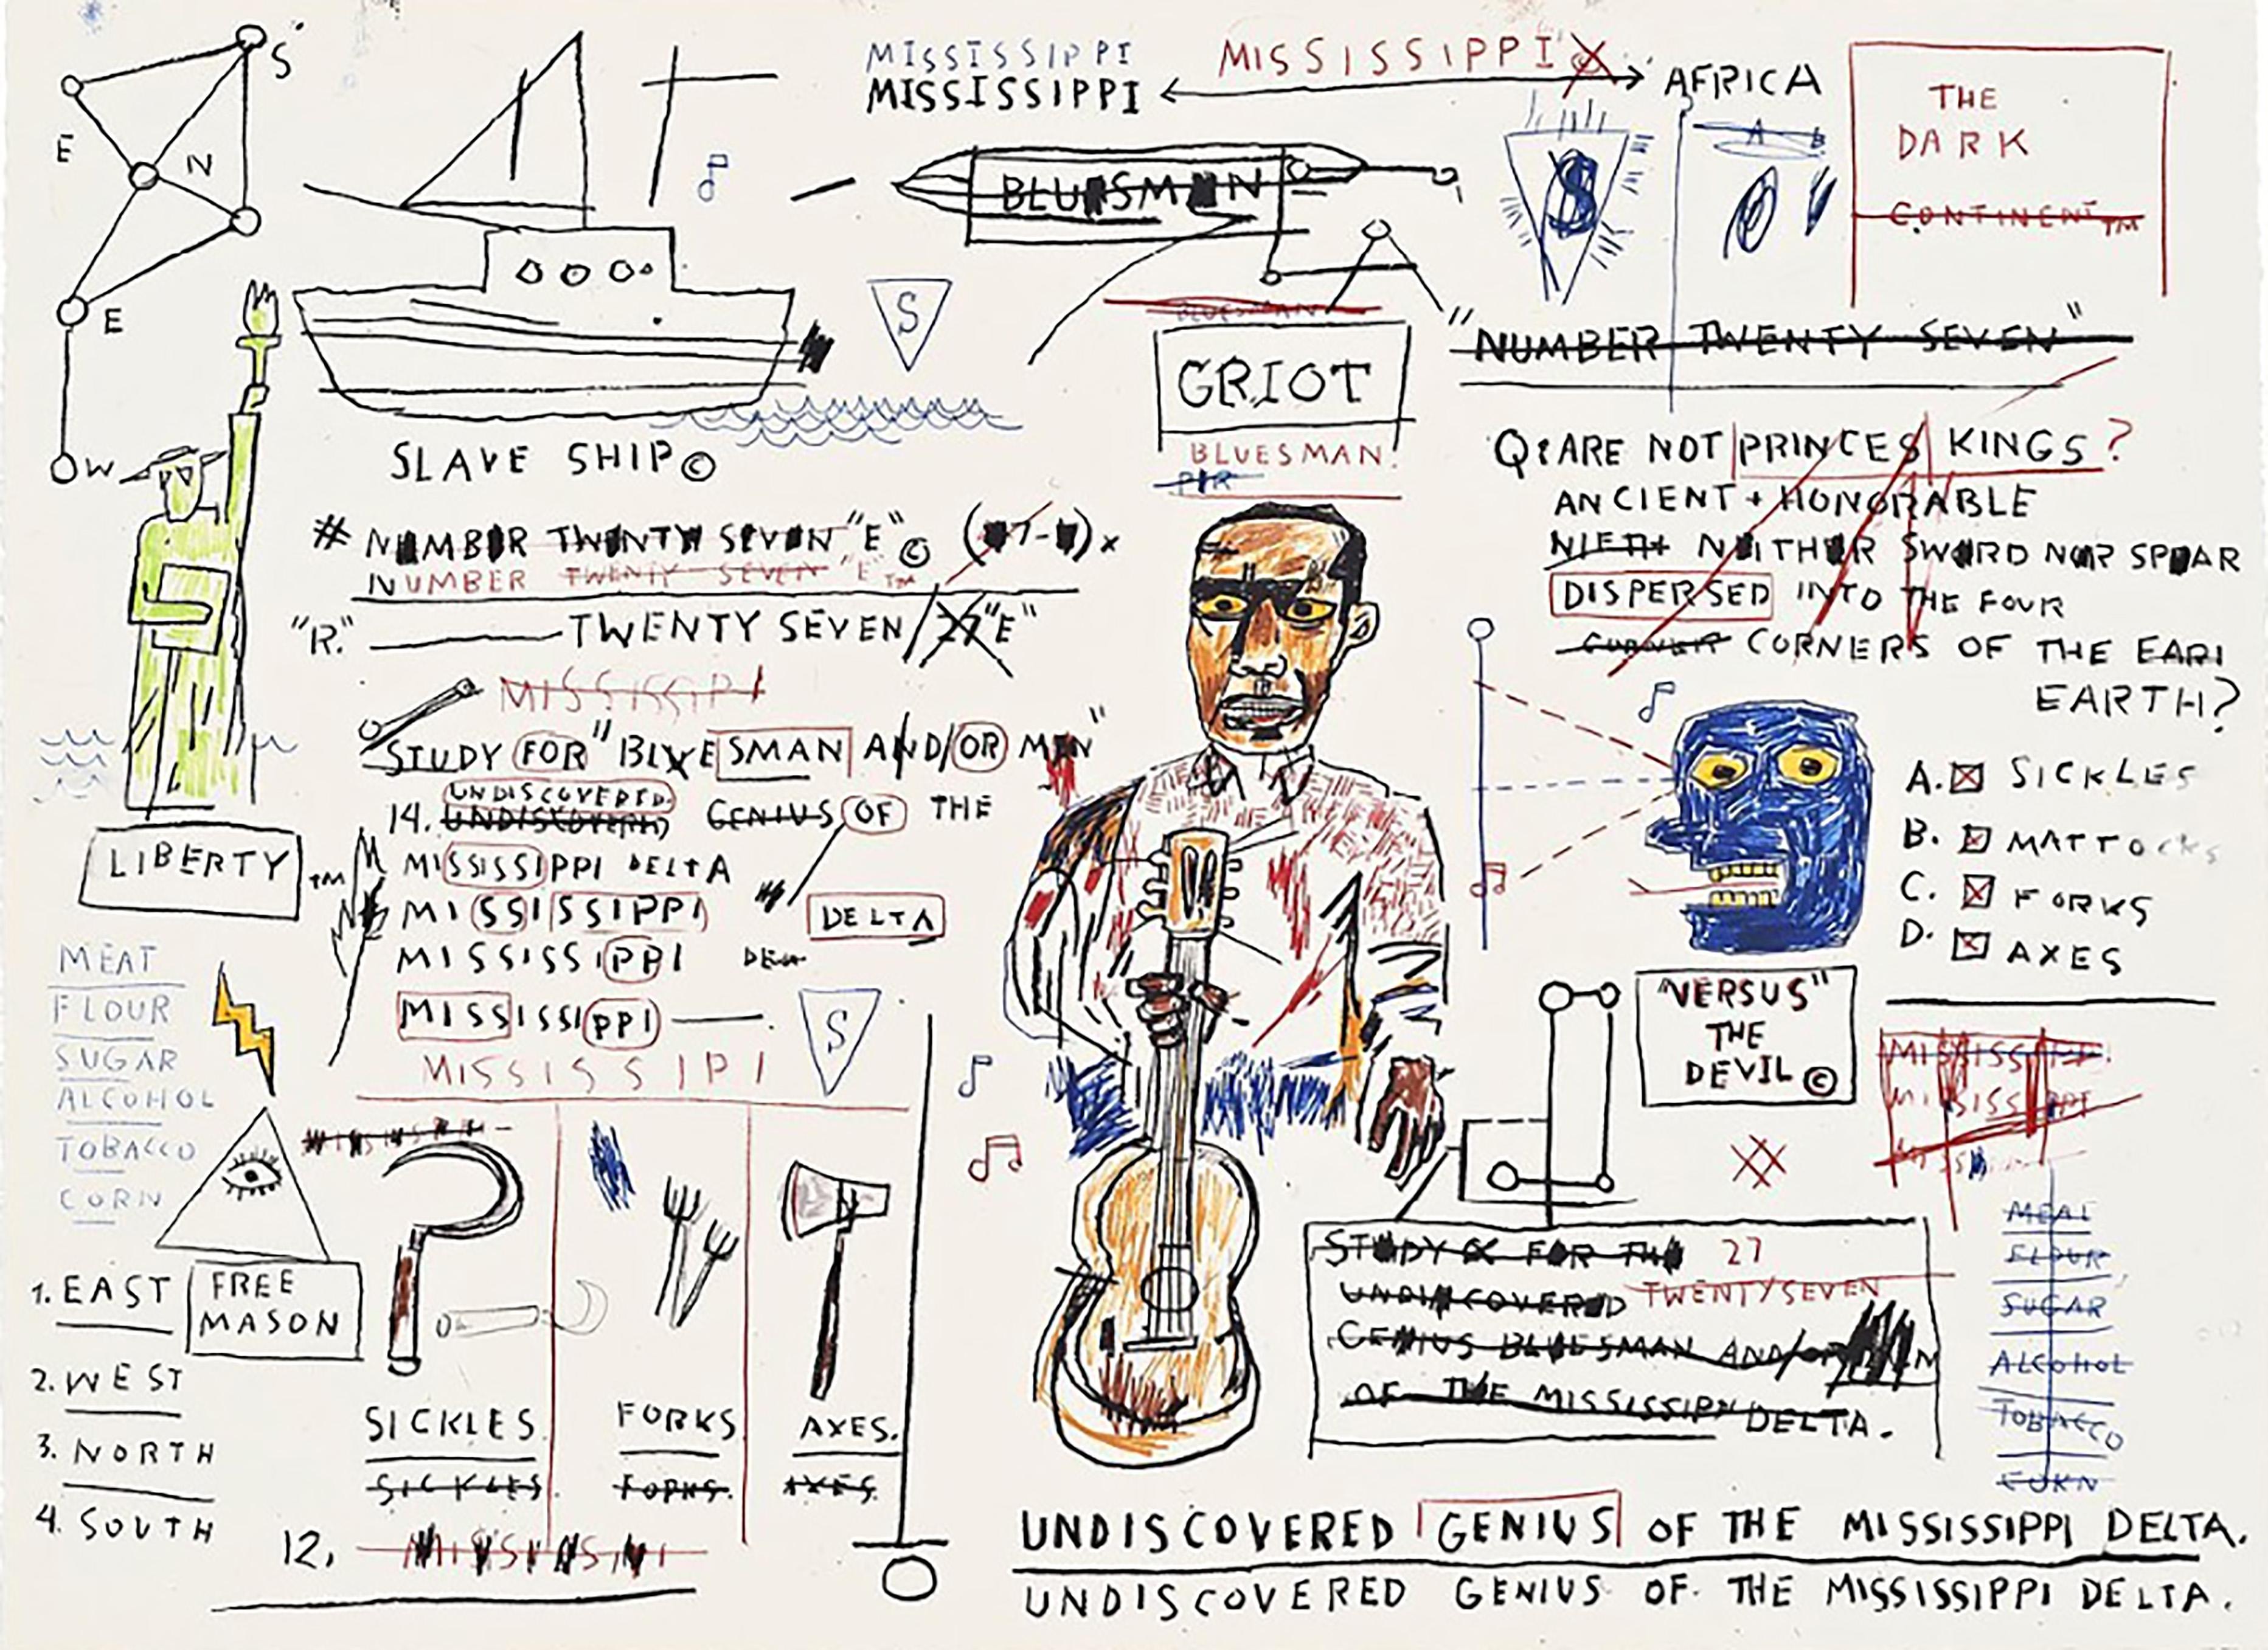 S
E
N
E
W
MISSISSIPPI
MISSISSIPPI
MISSISSIPPI
AFRICA
THE
DARK
CONTINENT™
BLUESMEN
$
A B
S
BLUESMAN
GRIOT
BLUESMAN.
"NUMBER TWENTY SEVEN"
SLAVE SHIP ©
# NUMBER TWENTY SEVEN "E" ©
NUMBER TWENTY SEVEN "E"™
"R." TWENTY SEVEN/27 "E"
Q: ARE NOT PRINCES KINGS?
ANCIENT + HONORABLE
NIETH NEITHER SWORD NOR SPEAR
DISPERSED INTO THE FOUR
CORNERS OF THE EARI
EARTH?
A. SICKLES
B. MATTOCKS
C. FORKS
D. AXES
MISSISSIPI
STUDY FOR "BLUESMAN AND/OR MEN"
UNDISCOVERED
14. UNDISCOVERED GENIUS OF THE
MISSISSIPPI DELTA
MISSISSIPPI DELTA
MISSISSIPPI
MISSISSIPPI
S
MISSISSIPI
LIBERTY™
MEAT
FLOUR
SUGAR
ALCOHOL
TOBACCO
CORN
FREE
MASON
1. EAST
2. WEST
3. NORTH
4. SOUTH
SICKLES
SICKLES
FORKS
FORKS.
AXES.
AXES.
12.
"VERSUS"
THE
DEVIL ©
MISSISSIPPI
MISSISSIPPI
STUDY FOR THE 27
UNDISCOVERED TWENTYSEVEN
GENIUS BLUESMAN AND/OR
OF THE MISSISSIPPI DELTA.
MEAL
FLOUR
SUGAR
ALCOHOL
TOBACCO
CORN
UNDISCOVERED GENIUS OF THE MISSISSIPPI DELTA.
UNDISCOVERED GENIUS OF THE MISSISSIPPI DELTA.